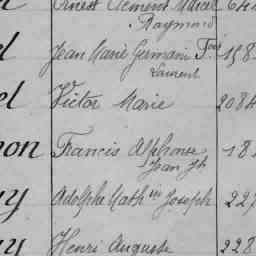 Ernest Clément Marcel 64
Raymond
el Jean Marie Germain Fois 198
Laurent
el Victor Marie 2084
non Francis Alphonse 18
Jean Jh
uy Adolphe Math in Joseph 227
uy Henri Auguste 228